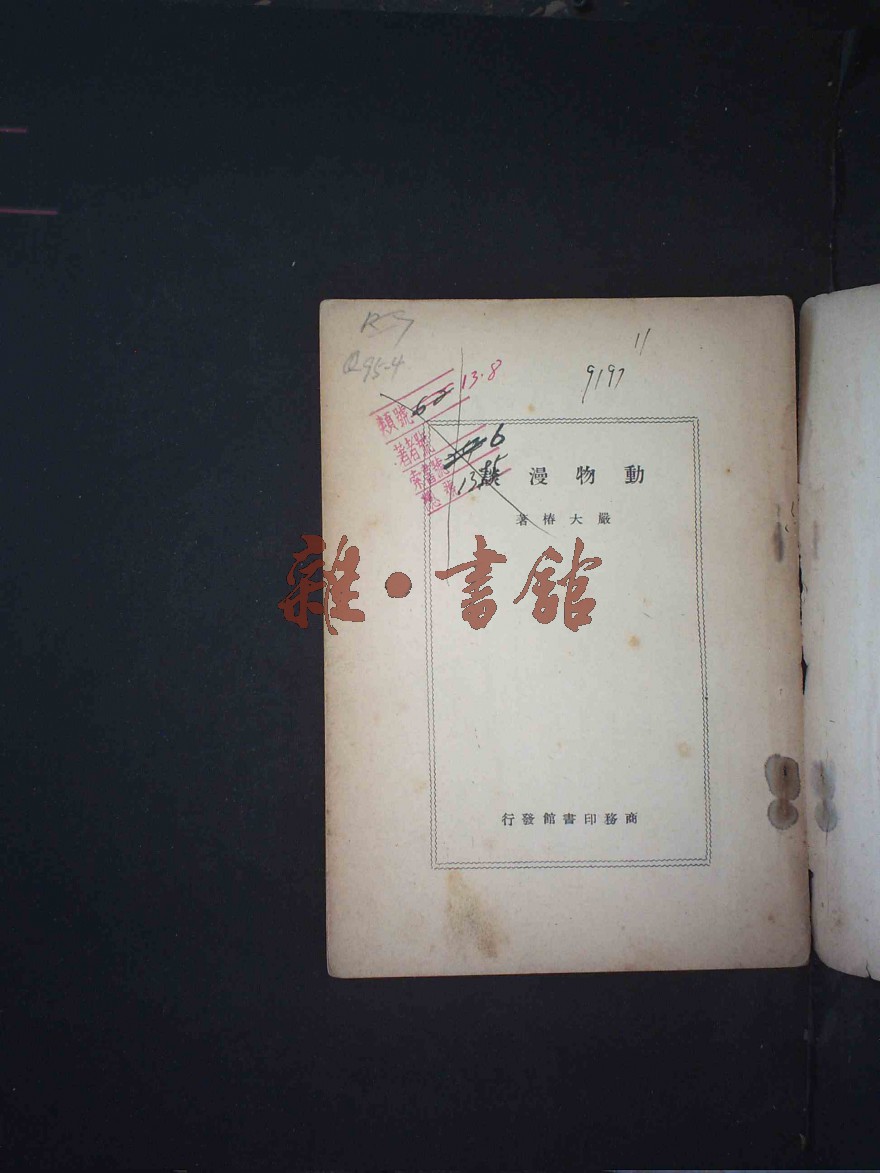 Q95-4
11
9197
13.8
類號
著者號
索書號
6
動物漫談
嚴大椿著
雜·書館
商務印書館發行